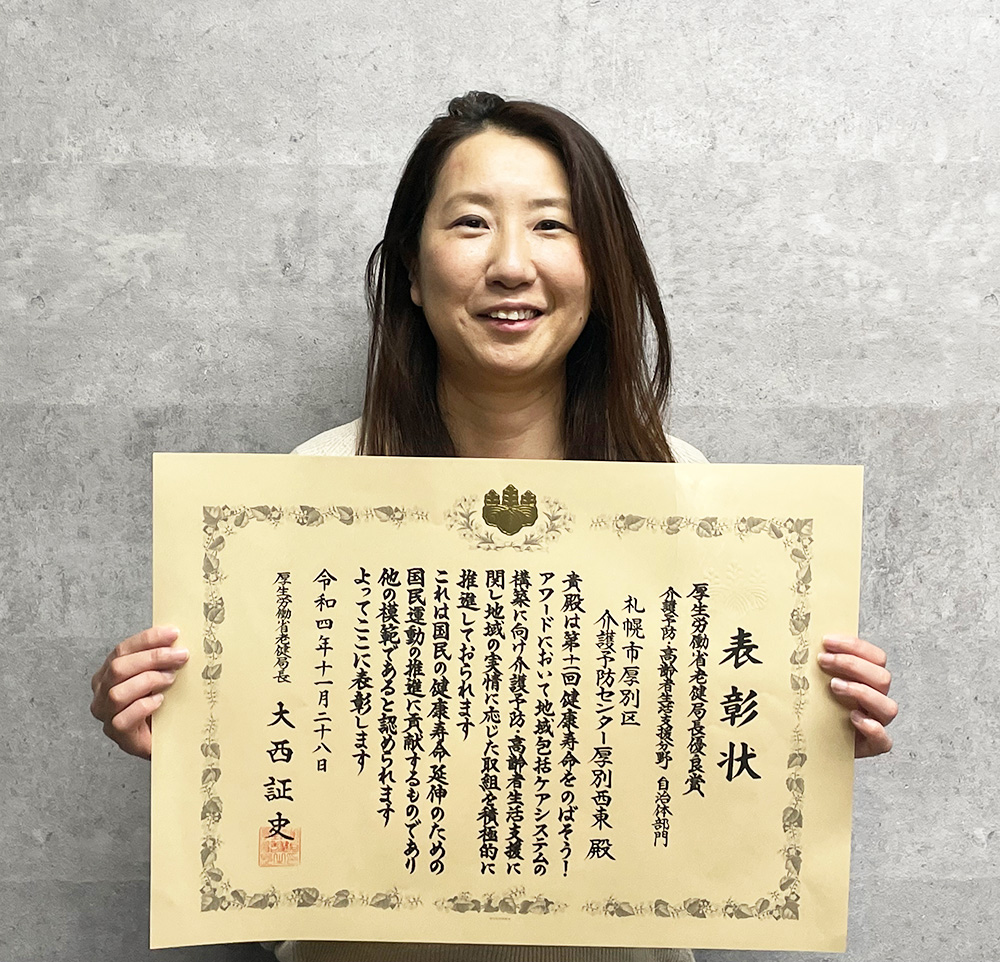 表彰状
厚生労働省老健局長優良賞
介護予防・高齢者生活支援分野 自治体部門
札幌市厚別区
介護予防センター厚別西東 殿
貴殿は第十一回健康寿命をのばそう！
アワードにおいて地域包括ケアシステムの
構築に向け介護予防・高齢者生活支援に
関し地域の実情に応じた取組を積極的に
推進しておられます
これは国民の健康寿命延伸のための
国民運動の推進に貢献するものであり
他の模範であると認められます
よってここに表彰します
令和四年十一月二十八日
厚生労働省老健局長 大西証史